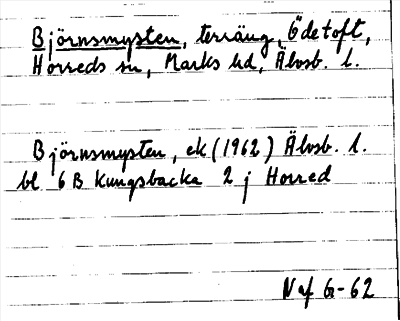 Björnsmysten, terräng, Ödetoft,
Horreds sn, Marks hd, Älvsb. l.
Björnsmysten, ek (1962) Älvsb. l.
bl. 6 B Kungsbacka 2 j Horred
Naf G-62